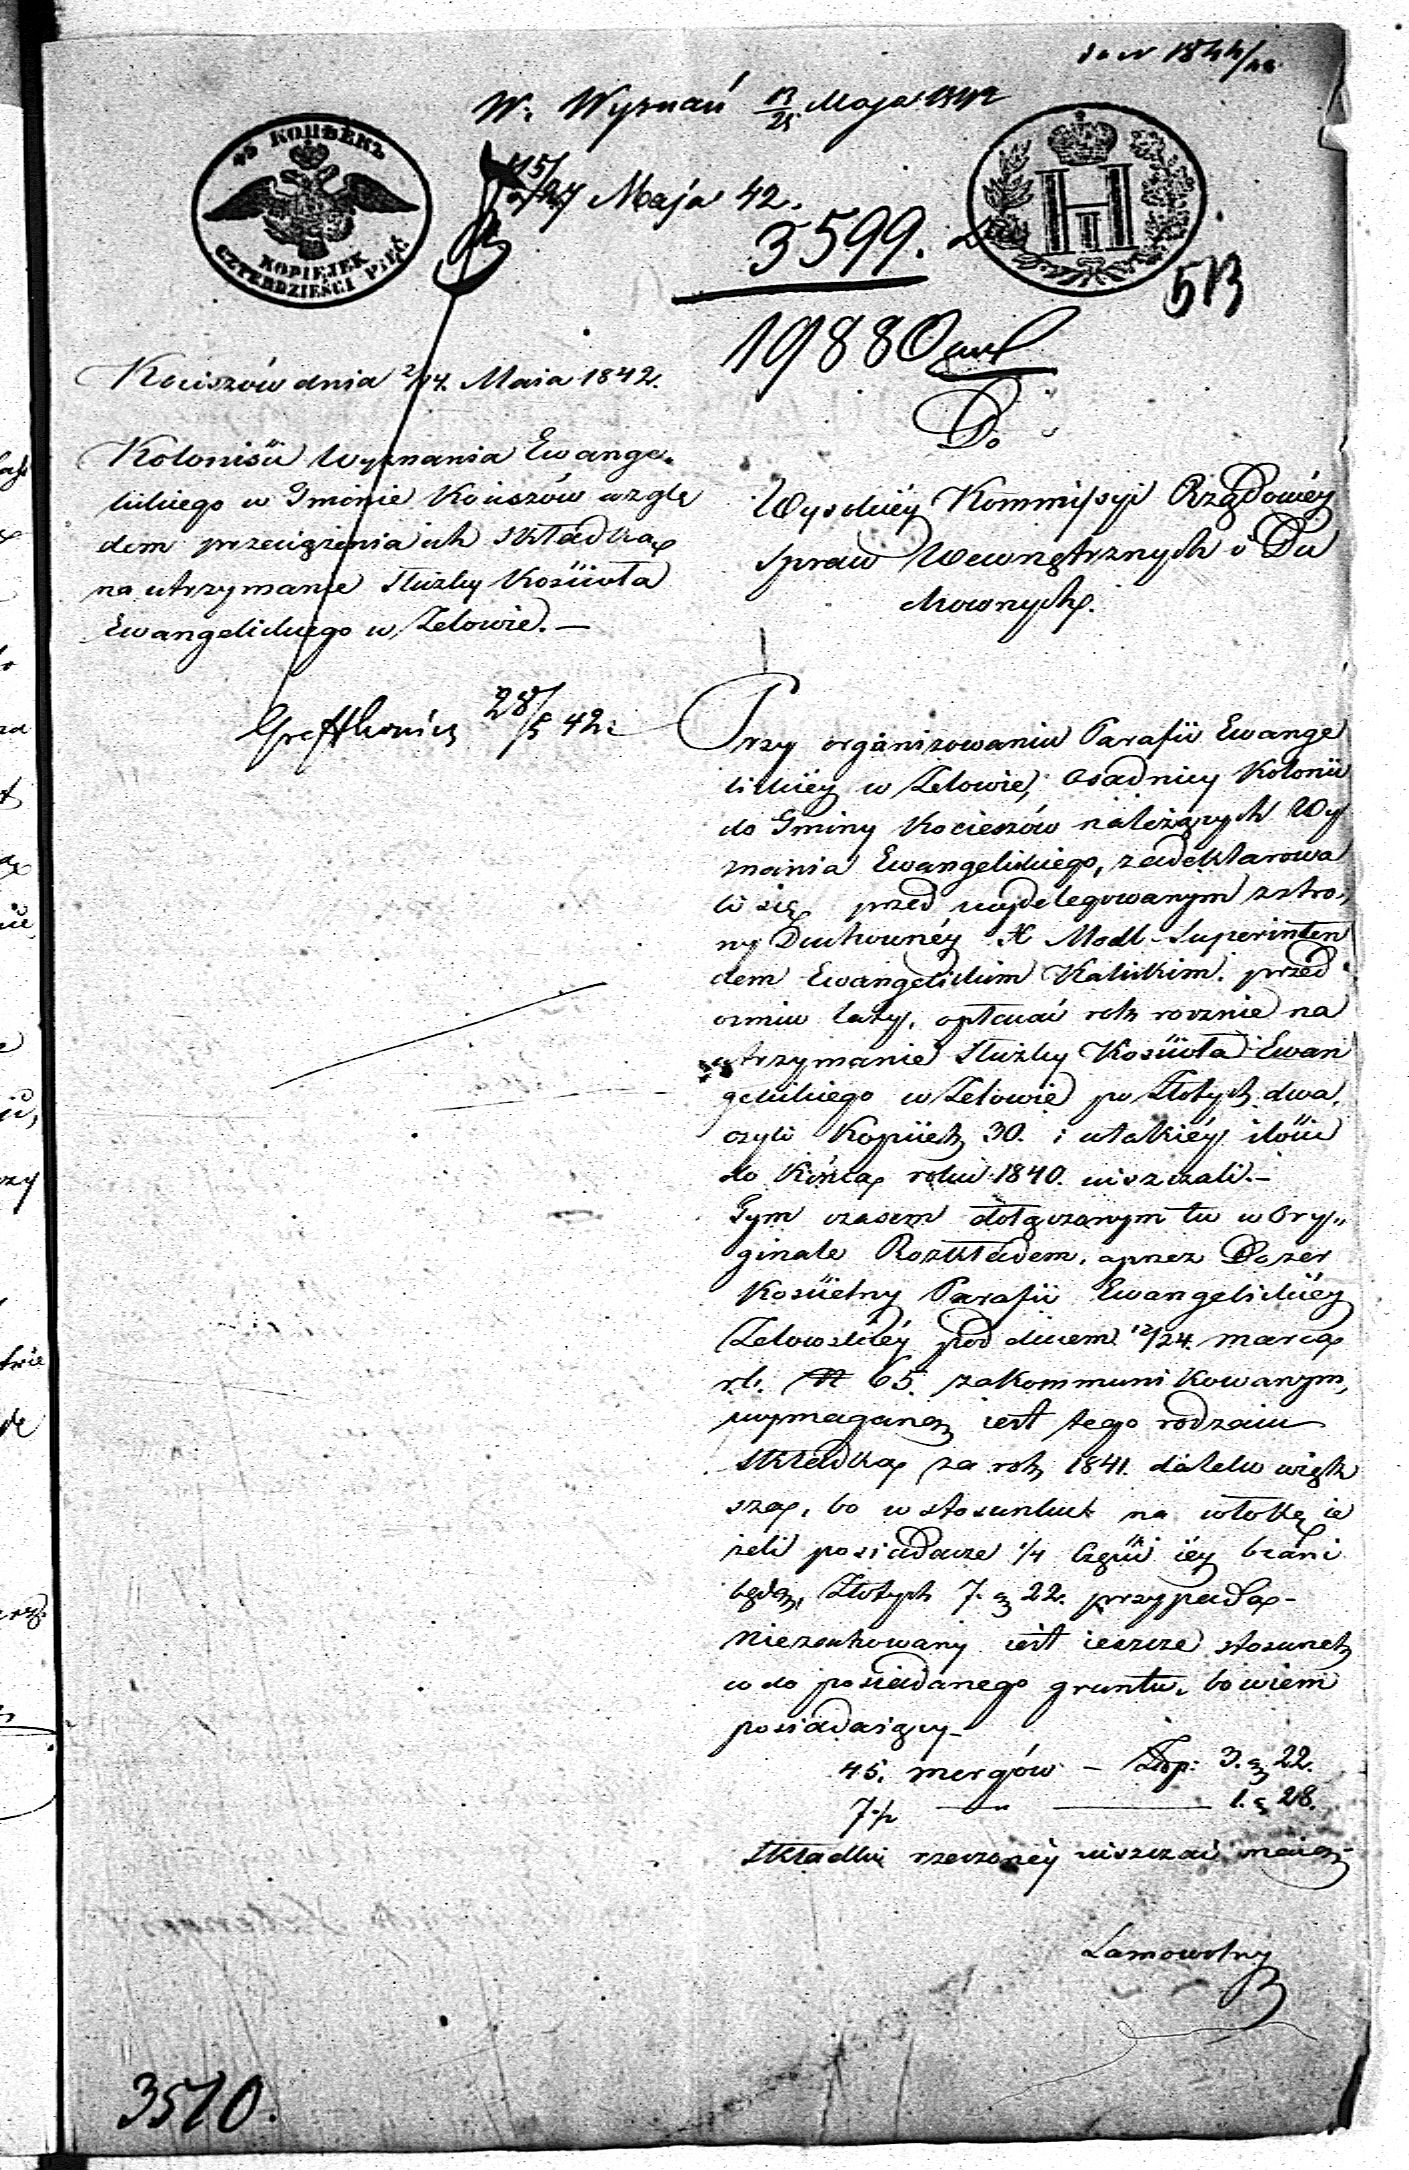 do N 1844/42
W. Wyznań 13/25 Maja 1842
15/27 Maja 42.
3599.
513
45 КОПѢЕКЪ
KOPIEJEK
CZTERDZIEŚCI PIĘĆ
19880
Kociszów dnia 2/14. Maia 1842.
Kolonisci Wyznania Ewange„
lickiego w Gminie Kociszów wzglę
dem przeciążenia ich składką
na utrzymanie Służby Kościoła
Ewangelickiego w Zelowie.—
28/5 42.
Do
Wysokiéy Kommissyi Rządowéy
Spraw Wewnętrznych i Du
chownych.
Przy organizowaniu Parafii Ewange
lickiéy w Zelowie, Osadnicy Kolonii
do Gminy Kocieszów należących Wy
znania Ewangelickiego, zadeklarowa
li się przed wydelegowanym zstro„
ny Duchownéy X Modl Superinten
dem Ewangelickim Kaliskim. przed
osmiu laty, opłacać rok rocznie na
utrzymanie Służby Kościoła Ewan
gelickiego w Zelowie po Złotych dwa,
czyli Kopiiek 30. i w takiéy ilości
do Końca roku 1840. uiszczali.—
Tym czasem dołączonym tu w Ory„
ginale Rozkładem, przez Dozór
Kościelny Parafii Ewangelickiéy
Zelowskiéy pod dniem 12/24. marca
r.b. N 65. zakommunikowanym,
wymaganą iest tego rodzaiu
składka za rok 1841. daleko więk
sza, bo w stosunku na włokę ie
żeli posiadacze 1/4 Części iéy brani
będą, Złotych 7. g 22. przypada-
Niezachowany iest ieszcze stosunek
co do posiadanego gruntu, bowiem
posiadaiący-
45. mergów — Złp: 3. g 22.
7½ — — 1. g 28.
Składki rzeczonéy uiszczać maią-
Samowolny
3510.